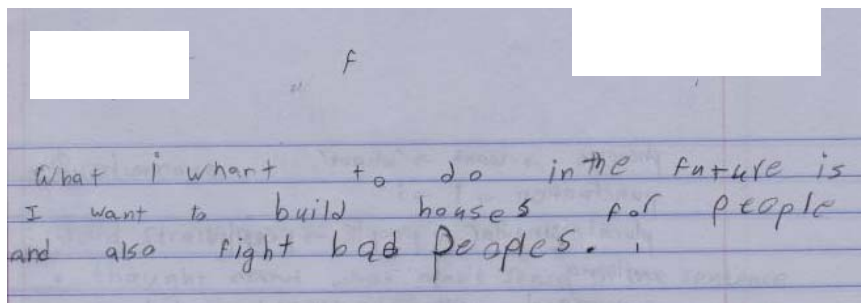 f
What i whant to do in the future is
I want to build houses for people
and also fight bad Peoples.